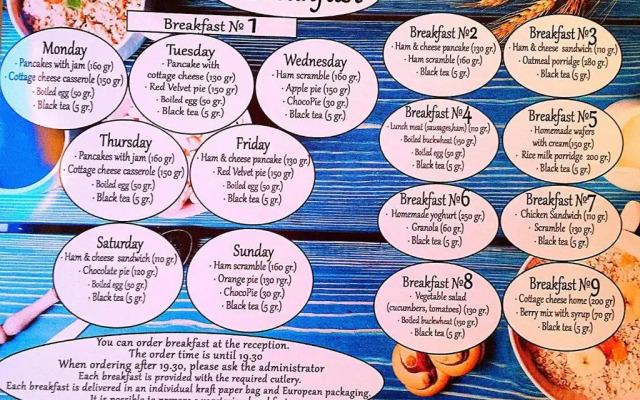 Breakfast № 1
Monday
· Pancakes with jam (160 gr)
· Cottage cheese casserole (150 gr)
· Boiled egg (50 gr.)
· Black tea (5 gr.)
Tuesday
· Pancake with
cottage cheese (130 gr)
· Red Velvet pie (150 gr)
· Boiled egg (50 gr.)
· Black tea (5 gr.)
Wednesday
· Ham scramble (160 gr.)
· Apple pie (150 gr)
· ChocoPie (30 gr.)
· Black tea (5 gr.)
Thursday
· Pancakes with jam (160 gr)
· Cottage cheese casserole (150 gr)
· Boiled egg (50 gr.)
· Black tea (5 gr.)
Friday
· Ham & cheese pancake (130 gr.)
· Red Velvet pie (150 gr)
· Boiled egg (50 gr.)
· Black tea (5 gr.)
Saturday
· Ham & cheese sandwich (110 gr.)
· Chocolate pie (120 gr)
· Boiled egg (50 gr.)
· Black tea (5 gr.)
Sunday
· Ham scramble (160 gr.)
· Orange pie (130 rgr.)
· ChocoPie (30 gr.)
· Black tea (5 gr.)
Breakfast №2
· Ham & cheese pancake (130 gr.)
· Ham scramble (160 gr.)
· Black tea (5 gr.)
Breakfast №3
· Ham & cheese sandwich (110 gr.)
· Oatmeal porridge (280 gr.)
· Black tea (5 gr.)
Breakfast №4
· Lunch meat (sausages,ham) (110 gr.)
· Boiled buckwheat (150 gr.)
· Boiled egg (50 gr.)
· Black tea (5 gr.)
Breakfast №5
· Homemade wafers
with cream(150 gr.)
· Rice milk porridge 200 gr.)
· Black tea (5 gr.)
Breakfast №6
· Homemade yoghurt (250 gr.)
· Granola (60 gr.)
· Black tea (5 gr.)
Breakfast №7
· Chicken Sandwich (110 gr.)
· Scramble (130 gr.)
· Black tea (5 gr.)
Breakfast №8
· Vegetable salad
(cucumbers, tomatoes) (130 gr.)
· Boiled buckwheat (150 gr.)
· Black tea (5 gr.)
Breakfast №9
· Cottage cheese home (200 gr)
· Berry mix with syrup (70 gr)
· Black tea (5 gr.)
You can order breakfast at the reception.
The order time is until 19.30
When ordering after 19.30, please ask the administrator
Each breakfast is provided with the required cutlery.
Each breakfast is delivered in an individual kraft paper bag and European packaging.
It is possible to